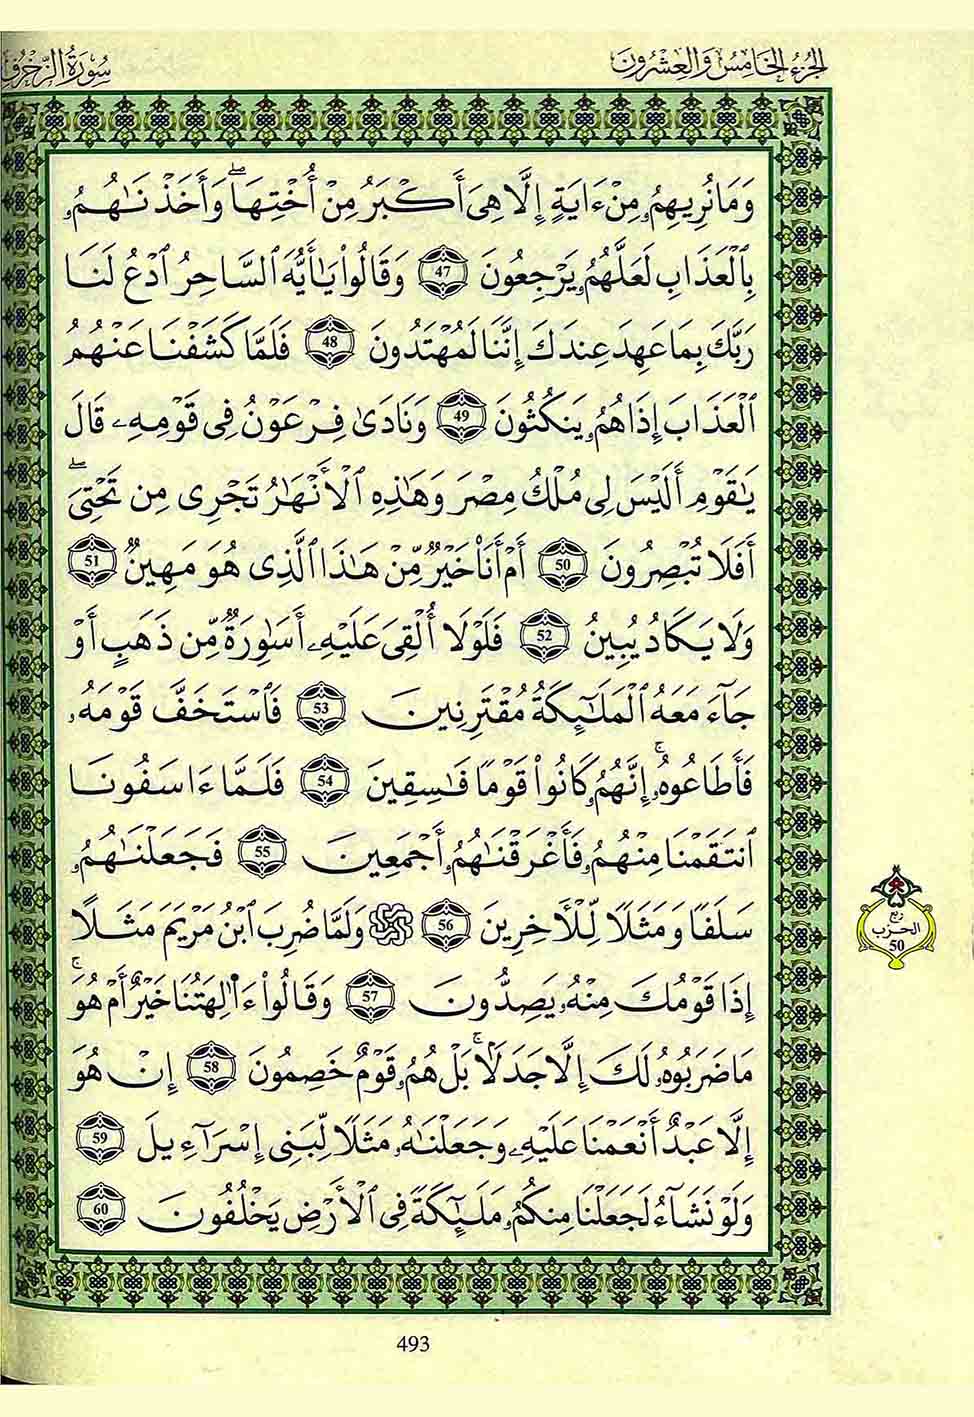 الجزء الخامس والعشرون
سورة الزخرف
وَمَا نُرِيهِمُۥ مِنْ ءَايَةٍ إِلَّا هِىَ أَكْبَرُ مِنْ أُخْتِهَاۖ وَأَخَذْنَٰهُمُۥ
بِالْعَذَابِ لَعَلَّهُمُۥ يَرْجِعُونَ 47 وَقَالُوا۟ يَٰأَيُّهَ اَ۬لسَّاحِرُ اُ۟دْعُ لَنَا
رَبَّكَ بِمَا عَهِدَ عِندَكَ إِنَّنَا لَمُهْتَدُونَ 48 فَلَمَّا كَشَفْنَا عَنْهُمُ
اُ۬لْعَذَابَ إِذَا هُمُۥ يَنكُثُونَ 49 وَنَادَىٰ فِرْعَوْنُ فِى قَوْمِهِۦ قَالَ
يَٰقَوْمِ أَلَيْسَ لِى مُلْكُ مِصْرَ وَهَٰذِهِ اِ۬لْأَنْهَٰرُ تَجْرِى مِن تَحْتِىَۖ
أَفَلَا تُبْصِرُونَ 50 أَمْ أَنَا۠ خَيْرٌ مِّنْ هَٰذَا اَ۬لَّذِى هُوَ مَهِينٌ 51
وَلَا يَكَادُ يُبِينُ 52 فَلَوْلَا أُلْقِىَ عَلَيْهِۦ أَسَٰوِرَةٌ مِّن ذَهَبٍ أَوْ
جَآءَ مَعَهُ اُ۬لْمَلَٰٓئِكَةُ مُقْتَرِنِينَ 53 فَاسْتَخَفَّ قَوْمَهُۥ
فَأَطَاعُوهُۥۚ إِنَّهُمُۥ كَانُوا۟ قَوْمًا فَٰسِقِينَ 54 فَلَمَّا ءَاسَفُونَا
اَ۪نتَقَمْنَا مِنْهُمُۥ فَأَغْرَقْنَٰهُمُۥ أَجْمَعِينَ 55 فَجَعَلْنَٰهُمُۥ
سَلَفًا وَمَثَلًا لِّلْأٓخِرِينَ 56 ۞ وَلَمَّا ضُرِبَ اَ۪بْنُ مَرْيَمَ مَثَلًا
إِذَا قَوْمُكَ مِنْهُۥ يَصِدُّونَ 57 وَقَالُوا۟ ءَاٰ۬لِهَتُنَا خَيْرٌ أَمْ هُوَۚ
مَا ضَرَبُوهُۥ لَكَ إِلَّا جَدَلًاۢۚ بَلْ هُمُۥ قَوْمٌ خَصِمُونَ 58 إِنْ هُوَ
إِلَّا عَبْدٌ أَنْعَمْنَا عَلَيْهِۦ وَجَعَلْنَٰهُۥ مَثَلًا لِّبَنِى إِسْرَآءِيلَ 59
وَلَوْ نَشَآءُ لَجَعَلْنَا مِنكُمُۥ مَلَٰٓئِكَةً فِى اِ۬لْأَرْضِ يَخْلُفُونَ 60
ربع
الحزب
50
493